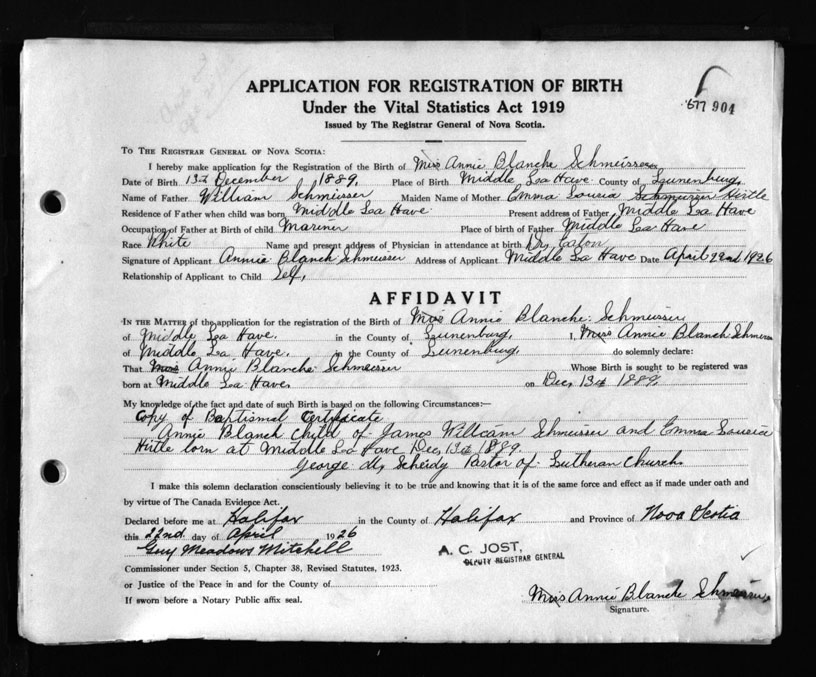 APPLICATION FOR REGISTRATION OF BIRTH
Under the Vital Statistics Act 1919
Issued by The Registrar General of Nova Scotia.
577 904
TO THE REGISTRAR GENERAL OF NOVA SCOTIA:
I hereby make application for the Registration of the Birth of Miss Annie Blanche Schmeisser
Date of Birth 13th December 1889. Place of Birth Middle La Have County of Lunenburg.
Name of Father William Schmeisser Maiden Name of Mother Emma Lousia Schmeisser Hirtle
Residence of Father when child was born Middle La Have Present address of Father Middle La Have
Occupation of Father at Birth of child Mariner Place of birth of Father Middle La Have
Race White Name and present address of Physician in attendance at birth Dr,
Signature of Applicant Annie Blanch Schmeisser Address of Applicant Middle La Have Date April 22nd 1926
Relationship of Applicant to Child Self,
AFFIDAVIT
IN THE MATTER of the application for the registration of the Birth of Miss Annie Blanche Schmeisser
of Middle La Have. in the County of Lunenburg, I, Miss Annie Blanch Schmeisser
of Middle La Have. in the County of Lunenburg. do solemnly declare:
That Miss Annie Blanche Schmeisser Whose Birth is sought to be registered was
born at Middle La Have on Dec, 13th 1889
My knowledge of the fact and date of such Birth is based on the following Circumstances:—
Copy of Baptismal Certificate
Annie Blanch Child of James William Schmeisser and Emma Lousia
Hirtle born at Middle La Have Dec, 13th 1889.
George M, Pastor of Lutheran Church
I make this solemn declaration conscientiously believing it to be true and knowing that it is of the same force and effect as if made under oath and
by virtue of The Canada Evidence Act.
Declared before me at Halifax in the County of Halifax and Province of Nova Scotia
this 22nd day of April 1926
Guy Meadows Mitchell
A. C. JOST,
DEPUTY REGISTRAR GENERAL
Commissioner under Section 5, Chapter 38, Revised Statutes, 1923.
or Justice of the Peace in and for the County of
If sworn before a Notary Public affix seal.
Miss Annie Blanche Schmeisser
Signature.